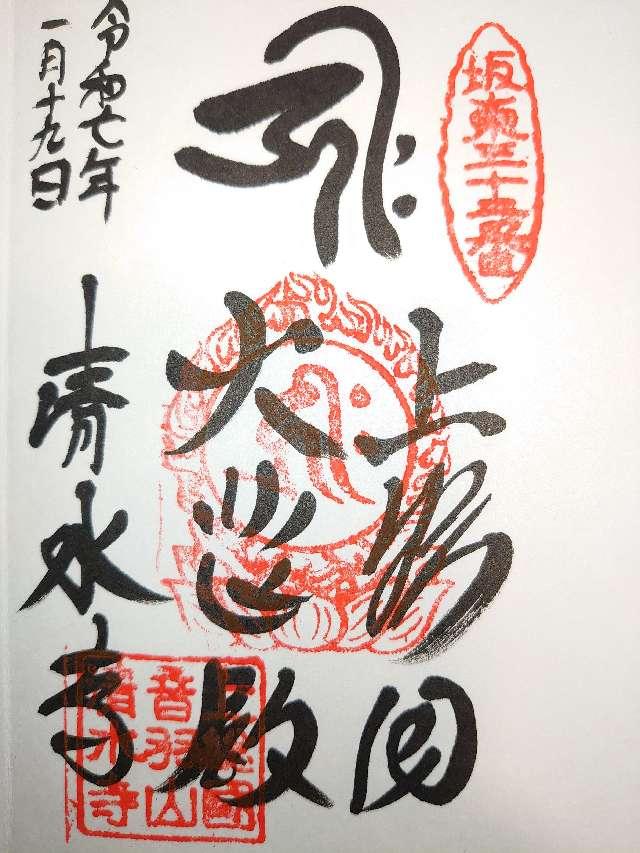 坂東三十番
上総国
大悲殿
令和七年
一月十九日
清水寺
上総國
音羽山
清水寺